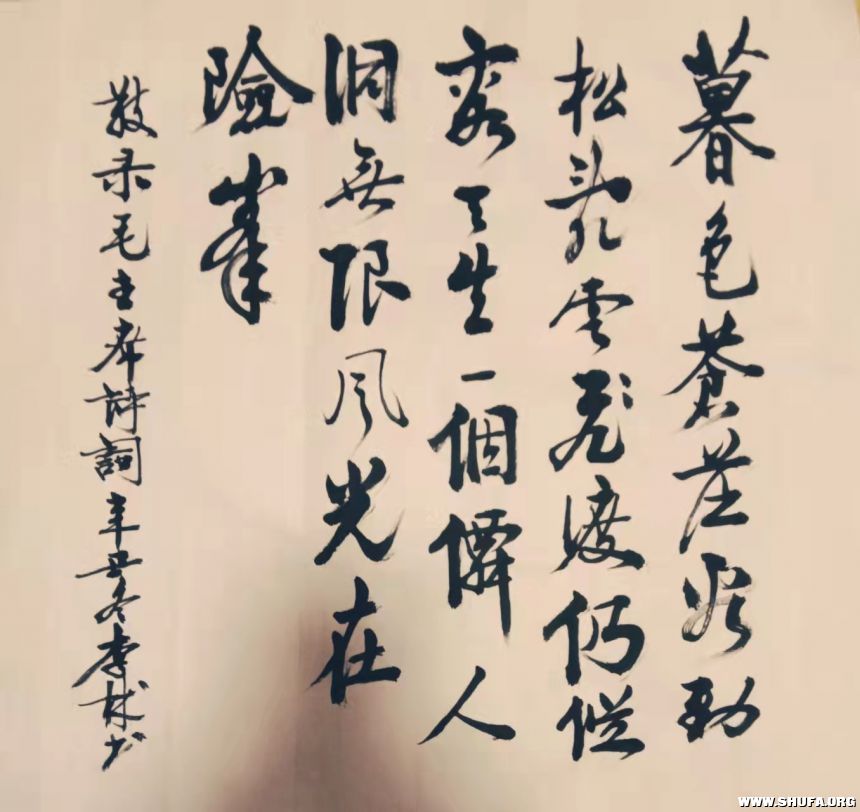 暮色蒼茫看勁
松亂雲飛渡仍從
容天生一個僊人
洞無限風光在
險峯
敬录毛主席詩詞辛丑冬李书
WWW.SHUFA.ORG